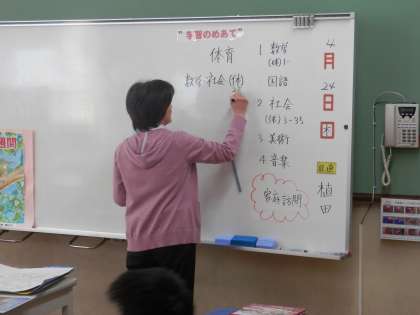 "学習のめあて"
体育
数学 社会 (体)
1. 数学
(体) 1-
国語
2 社会
(体) 3-35
3 美術
4 音楽
家庭訪問
4
月
24
日
木
植
田
週間